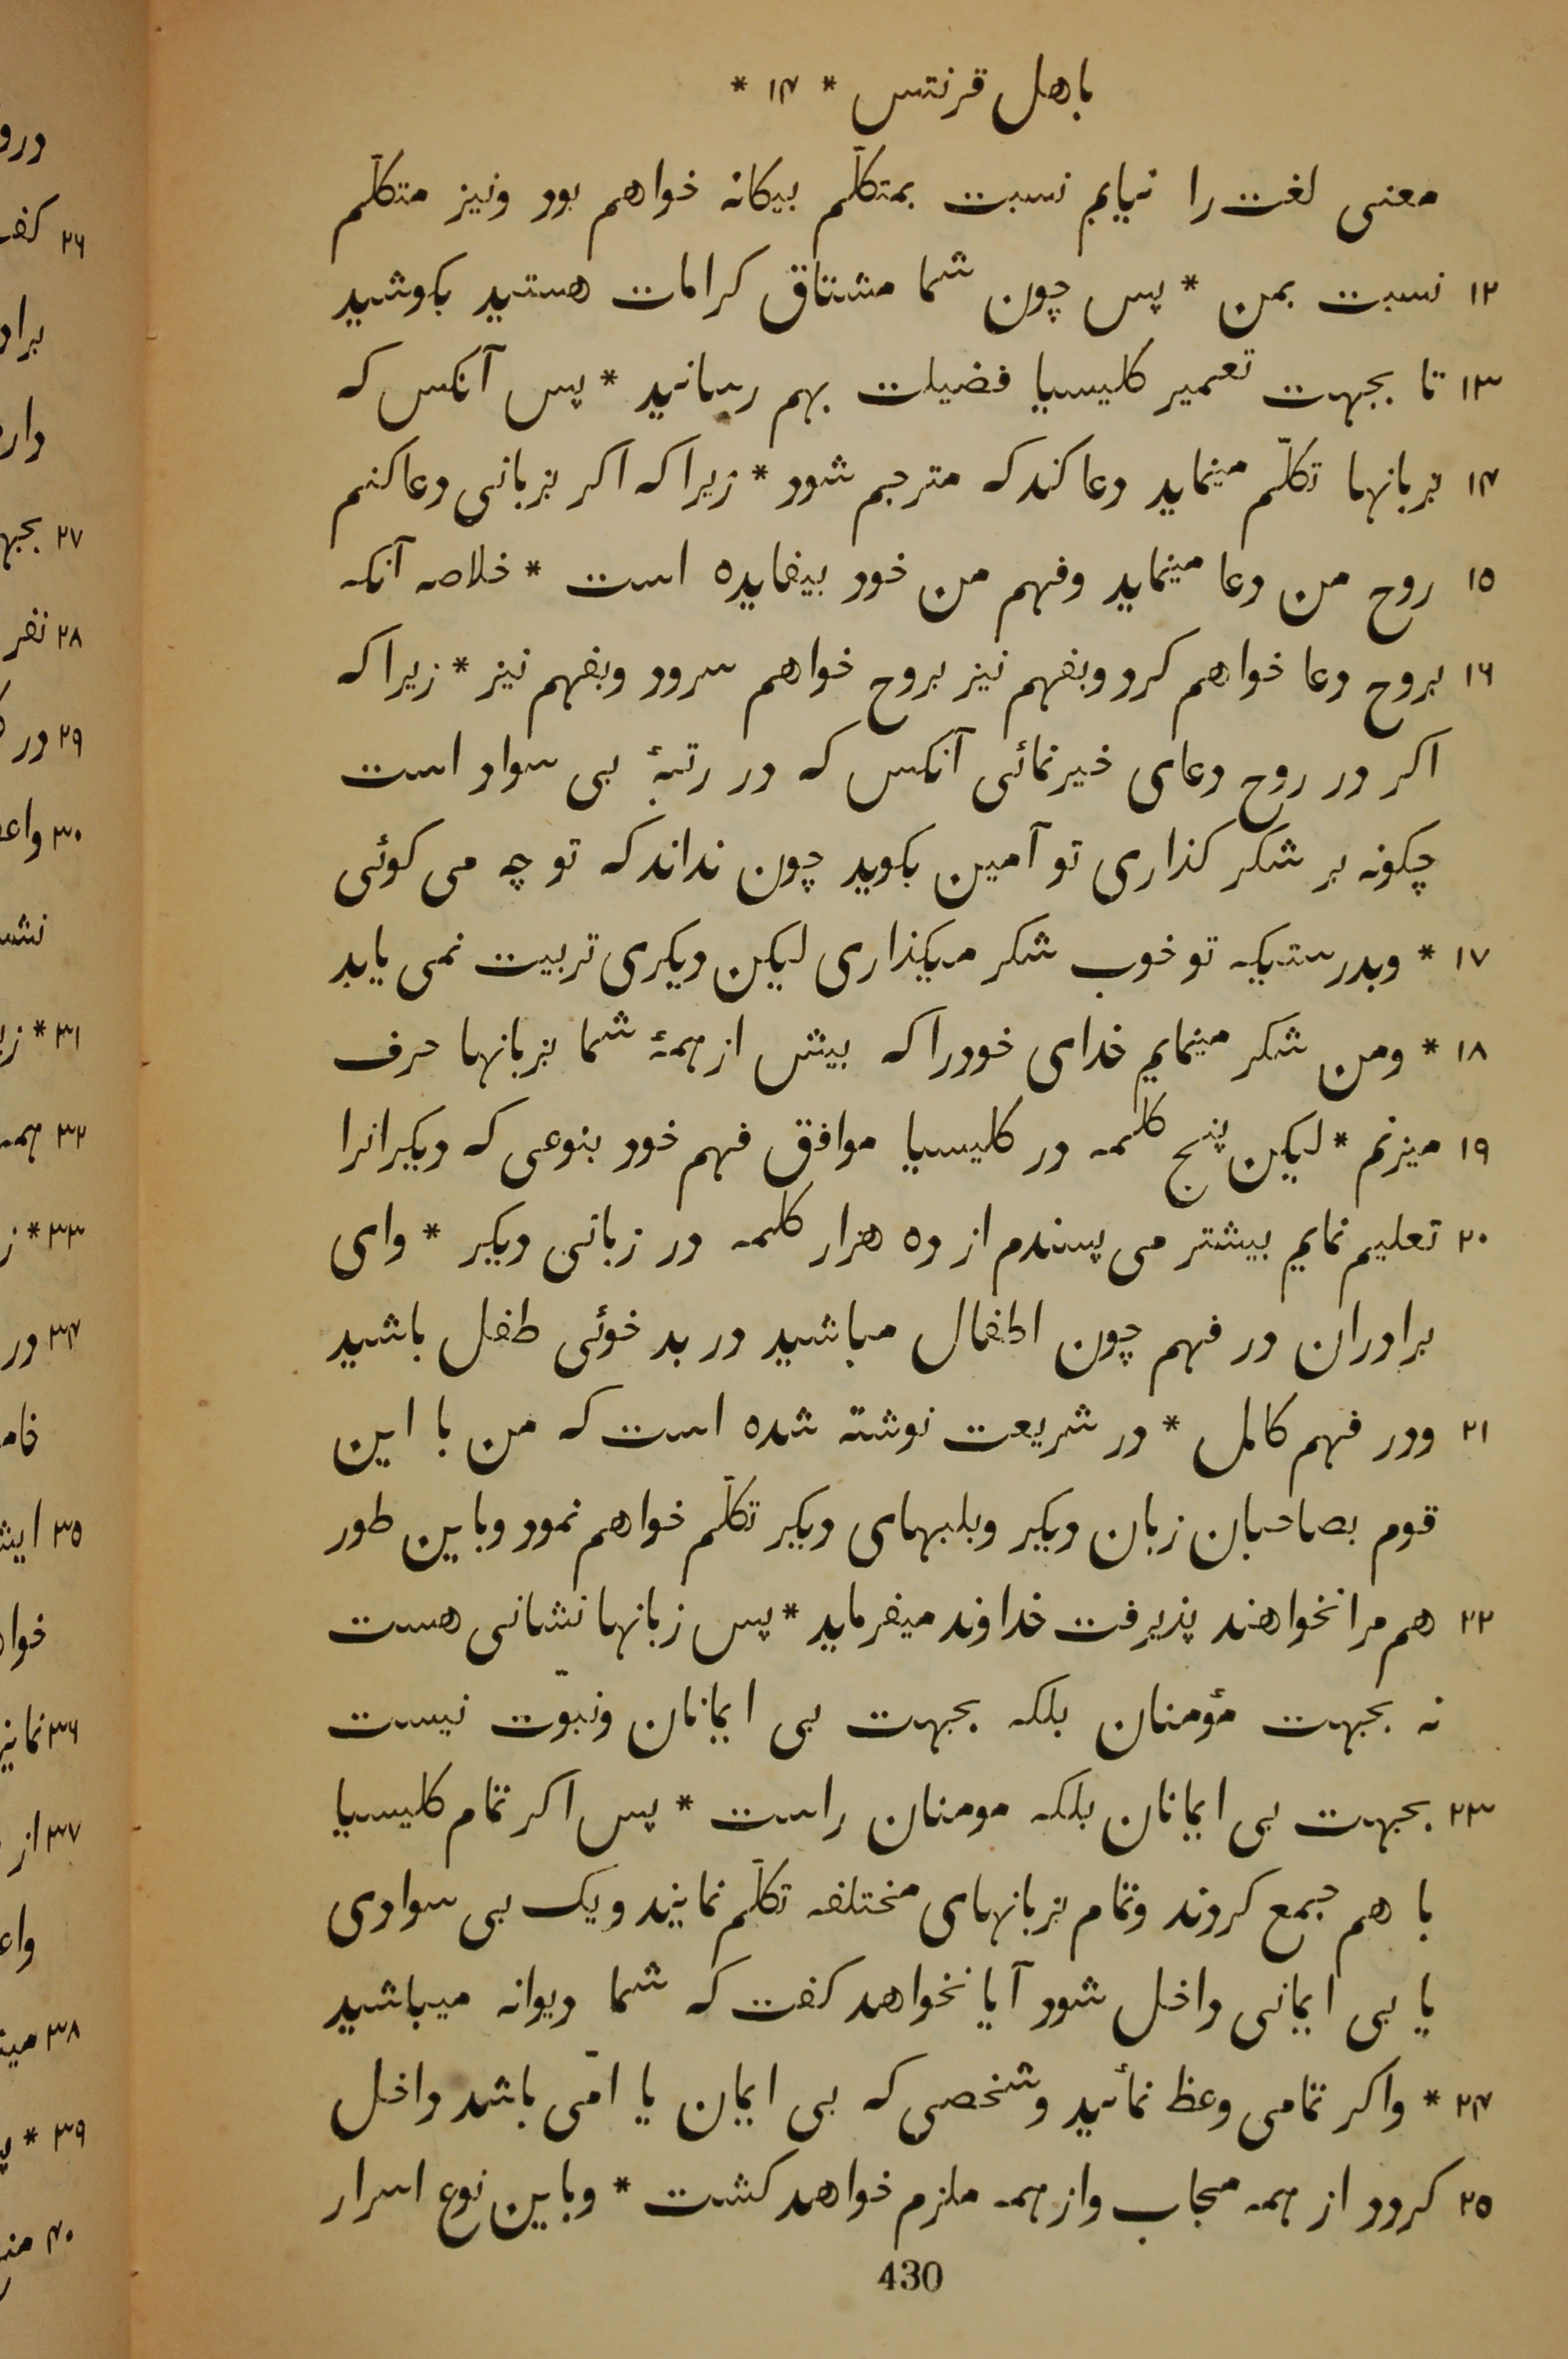 باهل قرنتس * ۱۴ *
معنی لغت را نیابم نسبت بمتکلّم بیکانه خواهم بود ونیز متکلّم
۱۲ نسبت بمن * پس چون شما مشتاق کرامات هستید بکوشید
۱۳ تا بجهت تعمیر کلیسیا فضیلت بهم رسانید * پس آنکس که
۱۴ بزبانها تکلّم مینماید دعا کند که مترجم شود * زیرا که اکر بزبانی دعا کنم
۱۵ روح من دعا مینماید وفهم من خود بیفایده است * خلاصه آنکه
۱۶ بروح دعا خواهم کرد وبفهم نیز بروح خواهم سرود وبفهم نیز * زیرا که
اکر در روح دعای خیر نمائی آنکس که در رتبهٔ بی سواد است
چکونه بر شکر کذاری تو آمین بکوید چون نداند که تو چه می کوئی
۱۷ * وبدرستیکه تو خوب شکر میکذاری لیکن دیکری تربیت نمی یابد
۱۸ * ومن شکر مینمایم خدای خود را که بیش از همهٔ شما بزبانها حرف
۱۹ میزنم * لیکن پنج کلمه در کلیسیا موافق فهم خود بنوعی که دیکرانرا
۲۰ تعلیم نمایم بیشتر می پسندم از ده هزار کلمه در زبانی دیکر * وای
برادران در فهم چون اطفال مباشید در بد خوئی طفل باشید
۲۱ ودر فهم کامل * در شریعت نوشته شده است که من با این
قوم بصاحبان زبان دیکر وبلبهای دیکر تکلّم خواهم نمود وباین طور
۲۲ هم مرا نخواهند پذیرفت خداوند میفرماید * پس زبانها نشانی هست
نه بجهت مؤمنان بلکه بجهت بی ایمانان ونبوّت نیست
۲۳ بجهت بی ایمانان بلکه مومنان راست * پس اکر تمام کلیسیا
با هم جمع کردند وتمام بزبانهای مختلفه تکلّم نمایند ویک بی سوادی
یا بی ایمانی داخل شود آیا نخواهد کفت که شما دیوانه میباشید
۲۴ * واکر تمامی وعظ نمائید وشخصی که بی ایمان یا امّی باشد داخل
۲۵ کردد از همه مجاب واز همه ملزم خواهد کشت * وباین نوع اسرار
430
۲۶
۲۷
۲۸ نفر
۲۹ در
۳۰
۳۱ *
۳۲
۳۳ *
۳۴ در
۳۵
۳۶
۳۷ از
۳۸
۳۹ *
۴۰